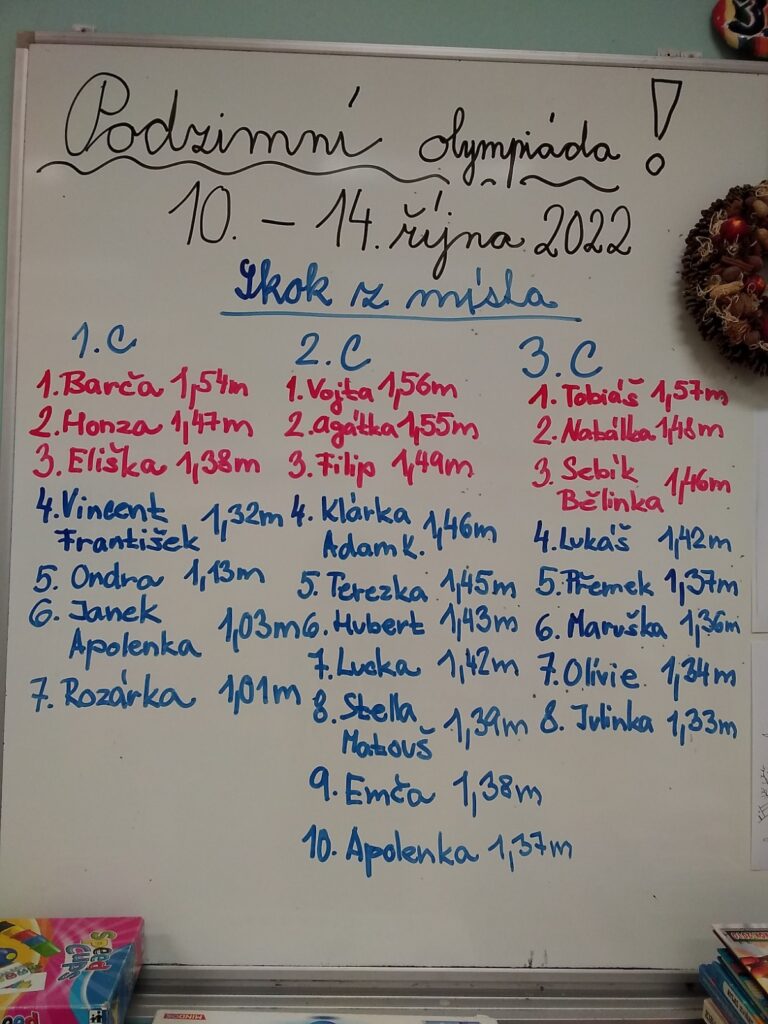 Podzimní olympiáda!
10. – 14. října 2022
Skok z místa
1. C
1. Barča 1,54m
2. Honza 1,47m
3. Eliška 1,38m
4. Vincent
František 1,32m
5. Ondra 1,13m
6. Janek
Apolenka 1,03m
7. Rozárka 1,01m
2. C
1. Vojta 1,56m
2. Agátka 1,55m
3. Filip 1,49m
4. Klárka
Adam K. 1,46m
5. Terezka 1,45m
6. Hubert 1,43m
7. Lucka 1,42m
8. Stella
Matouš 1,39m
9. Emča 1,38m
10. Apolenka 1,37m
3. C
1. Tobiáš 1,57m
2. Natálka 1,48m
3. Sebík
Bělinka 1,46m
4. Lukáš 1,42m
5. Přemek 1,37m
6. Maruška 1,36m
7. Olívie 1,34m
8. Julinka 1,33m
Speed
Cups